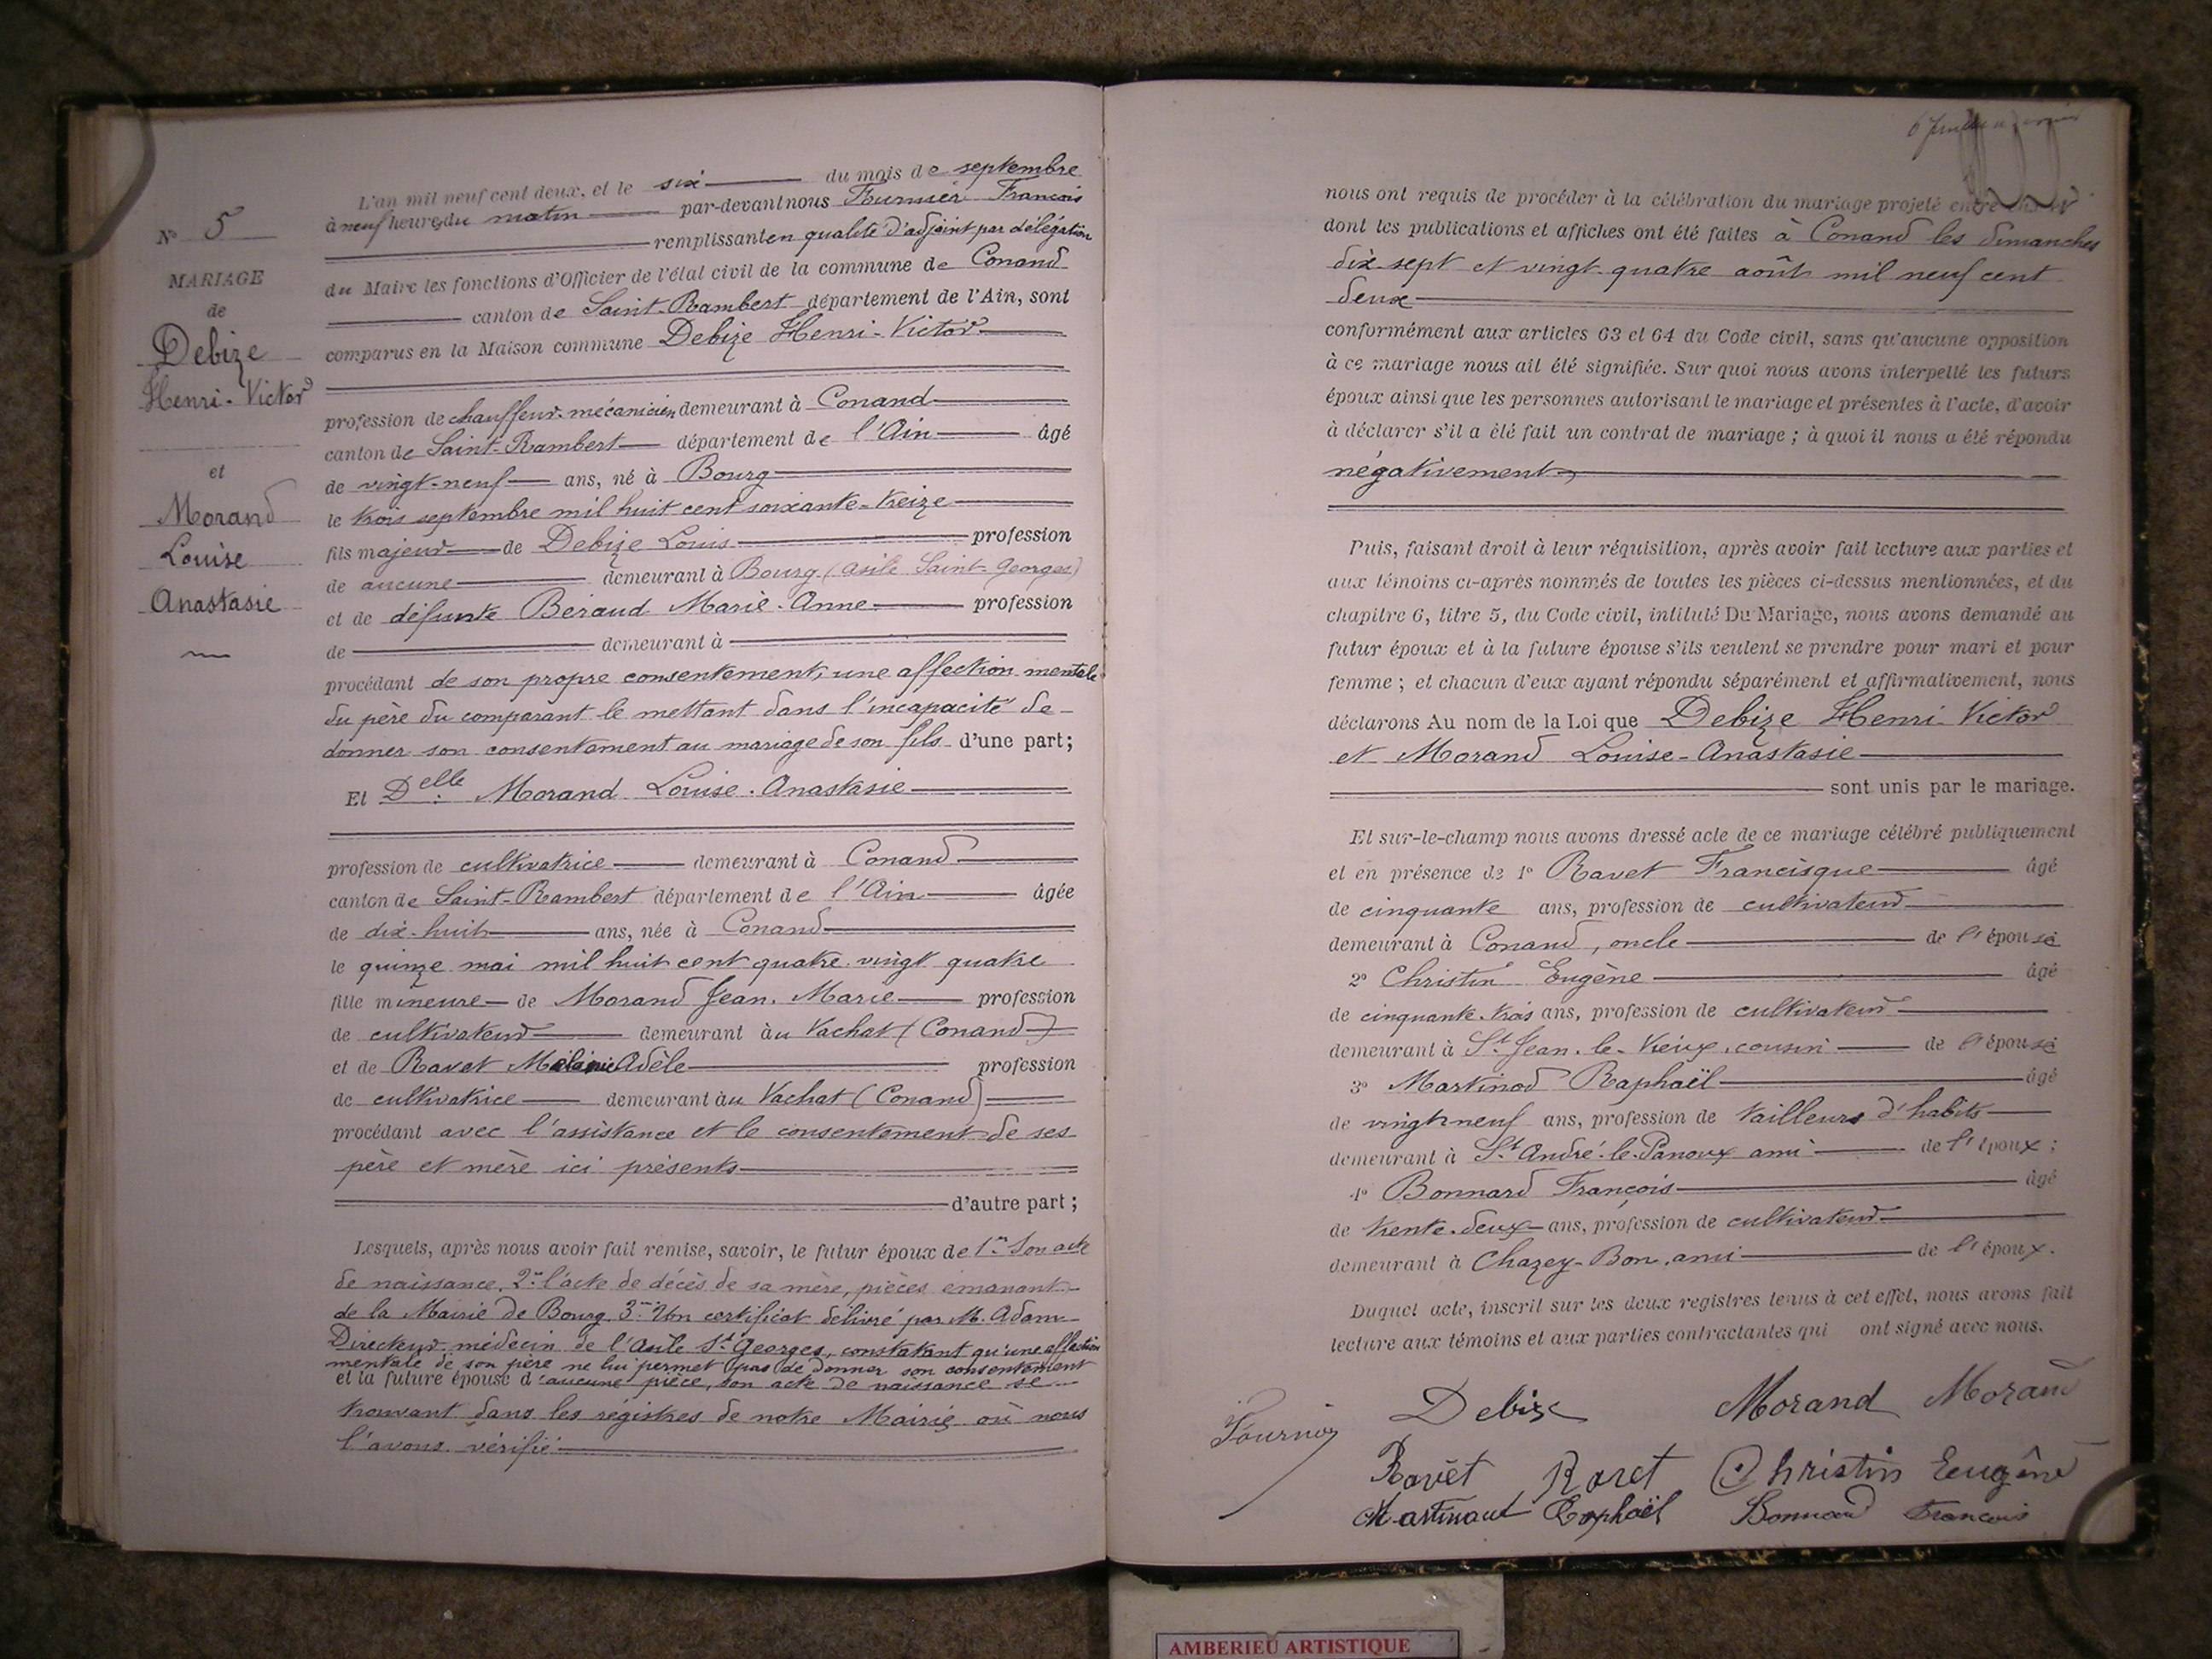 N° 5
MARIAGE
de
Debize
Henri-Victor
et
Morand
Louise
Anastasie
L'an mil neuf cent deux, et le six du mois de septembre
à neuf heures du matin par-devant nous Fournier François
remplissant en qualité d'adjoint par délégation
du Maire les fonctions d'Officier de l'état civil de la commune de Conand
canton de Saint-Rambert département de l'Ain, sont
comparus en la Maison commune Debize Henri-Victor
profession de chauffeur-mécanicien demeurant à Conand
canton de Saint-Rambert département de l'Ain âgé
de vingt-neuf ans, né à Bourg
le trois septembre mil huit cent soixante-treize
fils majeur de Debize Louis profession
de aucune demeurant à Bourg (asile Saint-Georges)
et de défunte Béraud Marie-Anne profession
de demeurant à
procédant de son propre consentement, une affection mentale
du père du comparant le mettant dans l'incapacité de
donner son consentement au mariage de son fils d'une part;
Et Delle Morand Louise-Anastasie
profession de cultivatrice demeurant à Conand
canton de Saint-Rambert département de l'Ain âgée
de dix-huit ans, née à Conand
le quinze mai mil huit cent quatre-vingt quatre
fille mineure de Morand Jean-Marie profession
de cultivateur demeurant au Vachat (Conand)
et de Ravet Mélanie Adèle profession
de cultivatrice demeurant au Vachat (Conand)
procédant avec l'assistance et le consentement de ses
père et mère ici présents
d'autre part;
Lesquels, après nous avoir fait remise, savoir, le futur époux de 1° Son acte
de naissance, 2° l'acte de décès de sa mère, pièces émanant
de la Mairie de Bourg 3° Un certificat délivré par M. Adam
Directeur-médecin de l'Asile St Georges, constatant qu'une affection
mentale de son père ne lui permet pas de donner son consentement
et la future épouse d'aucune pièce, son acte de naissance se
trouvant dans les régistres de notre Mairie où nous
l'avons vérifié
nous ont requis de procéder à la célébration du mariage projeté entre eux
dont les publications et affiches ont été faites à Conand les dimanches
dix-sept et vingt-quatre août mil neuf cent
deux
conformément aux articles 63 et 64 du Code civil, sans qu'aucune opposition
à ce mariage nous ait été signifiée. Sur quoi nous avons interpellé les futurs
époux ainsi que les personnes autorisant le mariage et présentes à l'acte, d'avoir
à déclarer s'il a été fait un contrat de mariage; à quoi il nous a été répondu
négativement
Puis, faisant droit à leur réquisition, après avoir fait lecture aux parties et
aux témoins ci-après nommés de toutes les pièces ci-dessus mentionnées, et du
chapitre 6, titre 5, du Code civil, intitulé Du Mariage, nous avons demandé au
futur époux et à la future épouse s'ils veulent se prendre pour mari et pour
femme; et chacun d'eux ayant répondu séparément et affirmativement, nous
déclarons Au nom de la Loi que Debize Henri-Victor
et Morand Louise-Anastasie
sont unis par le mariage.
Et sur-le-champ nous avons dressé acte de ce mariage célébré publiquement
et en présence de 1° Ravet Francisque âgé
de cinquante ans, profession de cultivateur
demeurant à Conand, oncle de l'épouse
2° Christin Eugène âgé
de cinquante-trois ans, profession de cultivateur
demeurant à St Jean-le-Vieux, cousin de l'épouse
3° Martinod Raphaël âgé
de vingt-neuf ans, profession de tailleurs d'habits
demeurant à St André-le-Panoux ami de l'époux;
4° Bonnard François âgé
de trente-deux ans, profession de cultivateur
demeurant à Chazey-Bon, ami de l'époux.
Duquel acte, inscrit sur les deux registres tenus à cet effet, nous avons fait
lecture aux témoins et aux parties contractantes qui ont signé avec nous.
Fournier Debize Morand Morand
Ravet Ravet Christin Eugène
Martinaud Raphaël Bonnard François
AMBERIEU ARTISTIQUE